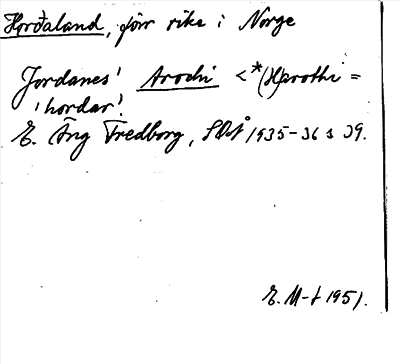 Horðaland, förr rike i Norge
Jordanes' Arochi < *(H)arothi =
'hordar'.
E. Äng Fredborg, SOÅ 1935-36 s 39.
E. M-t 1951.